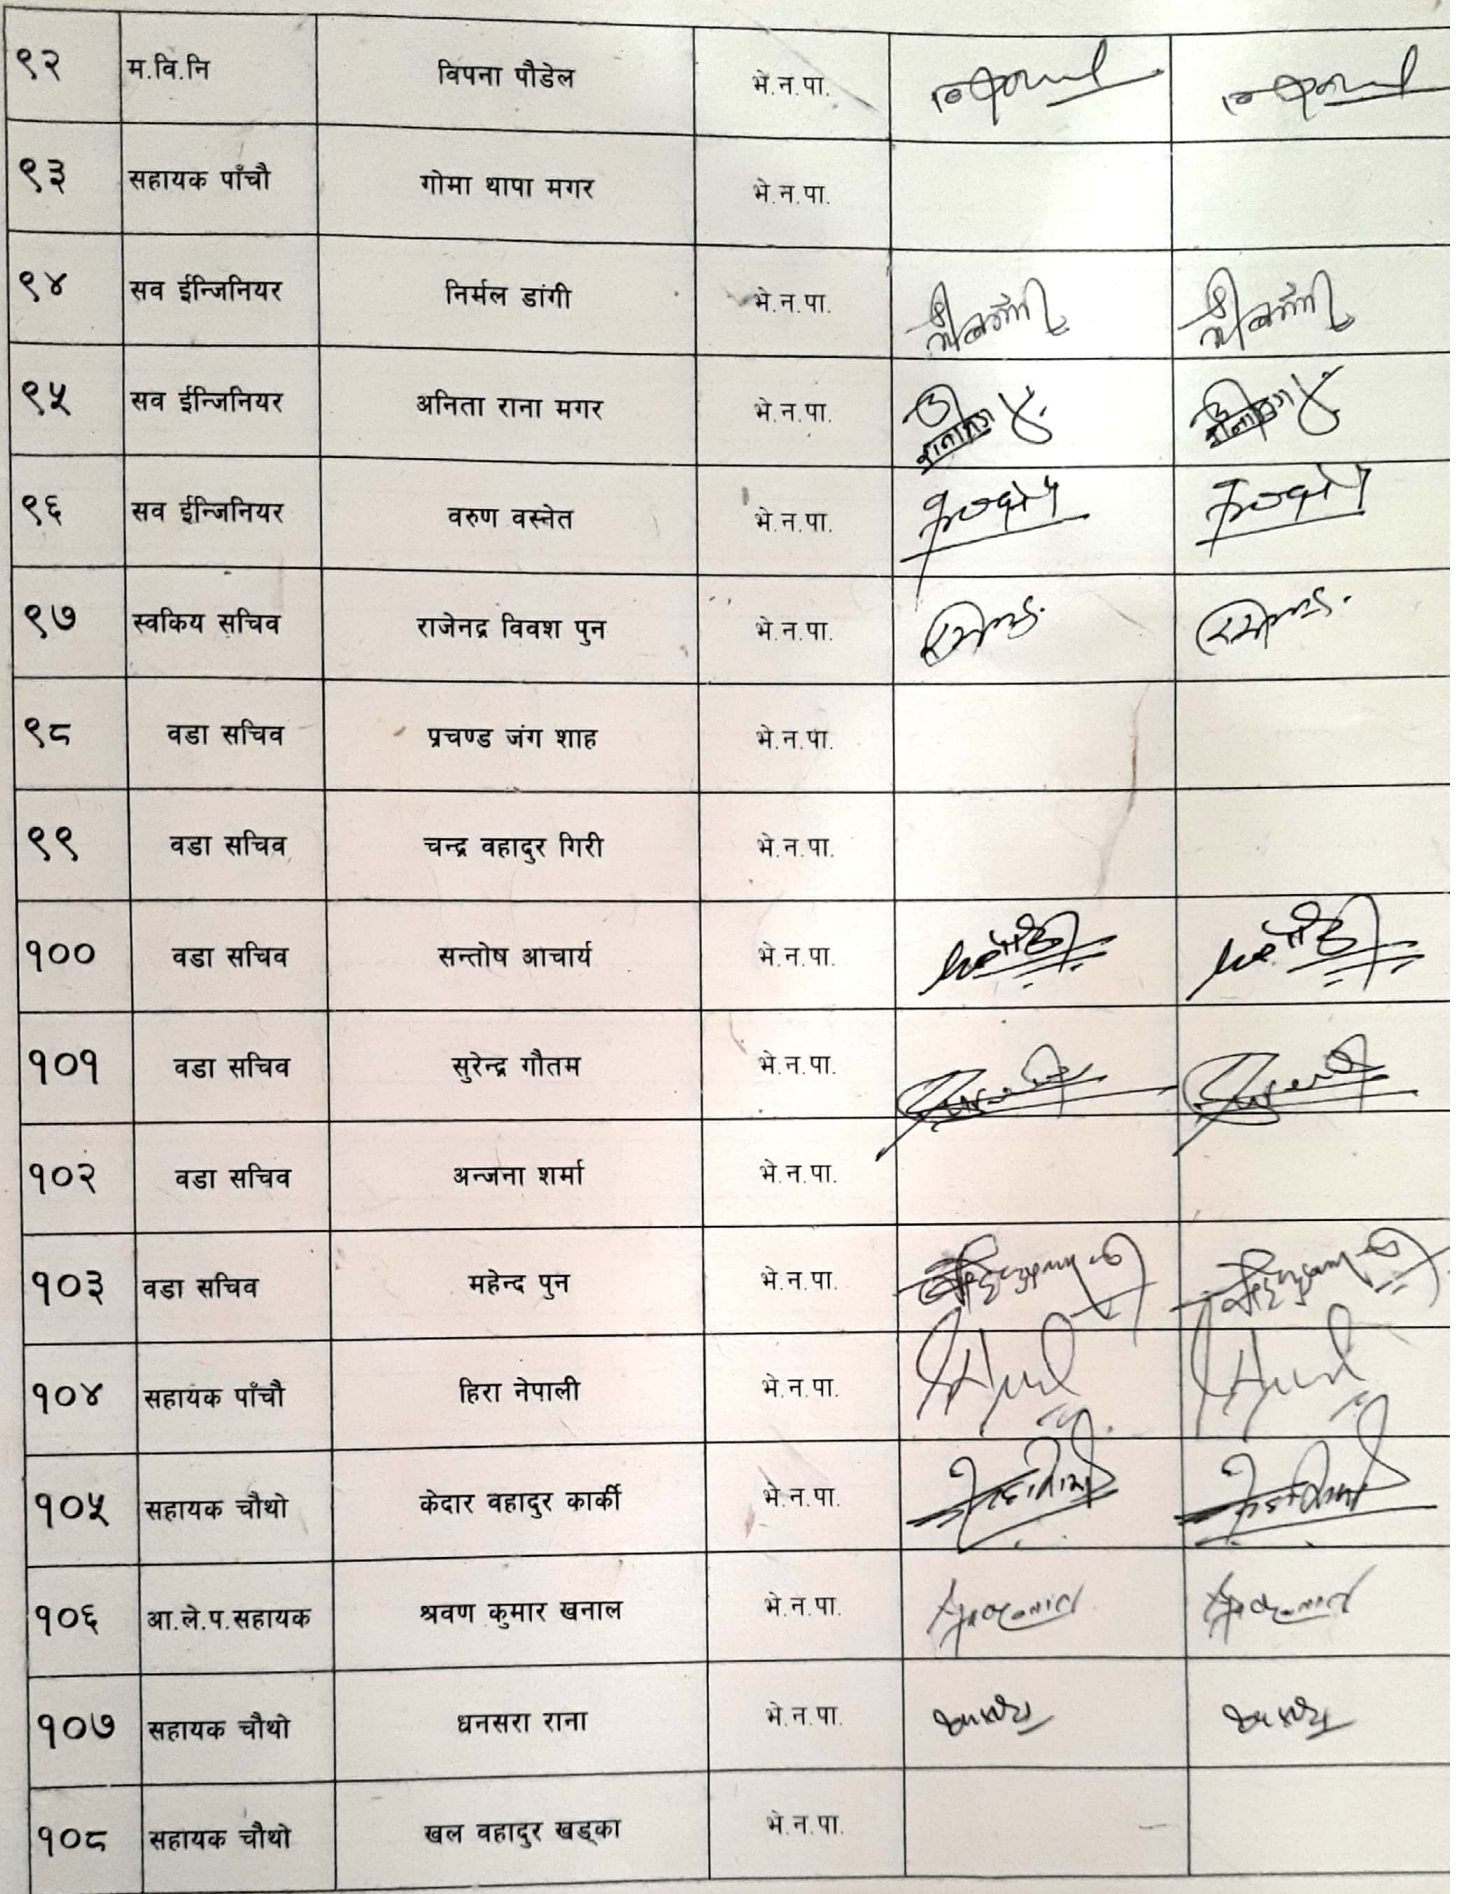 ९२ म.वि.नि विपना पौडेल भे.न.पा.
९३ सहायक पाँचौ गोमा थापा मगर भे.न.पा.
९४ सव ईन्जिनियर निर्मल डांगी भे.न.पा.
९५ सव ईन्जिनियर अनिता राना मगर भे.न.पा.
९६ सव ईन्जिनियर वरुण वस्नेत भे.न.पा.
९७ स्वकिय सचिव राजेनद्र विवश पुन भे.न.पा.
९८ वडा सचिव प्रचण्ड जंग शाह भे.न.पा.
९९ वडा सचिव चन्द्र वहादुर गिरी भे.न.पा.
१०० वडा सचिव सन्तोष आचार्य भे.न.पा.
१०१ वडा सचिव सुरेन्द्र गौतम भे.न.पा.
१०२ वडा सचिव अन्जना शर्मा भे.न.पा.
१०३ वडा सचिव महेन्द पुन भे.न.पा.
१०४ सहायक पाँचौ हिरा नेपाली भे.न.पा.
१०५ सहायक चौथो केदार वहादुर कार्की भे.न.पा.
१०६ आ.ले.प.सहायक श्रवण कुमार खनाल भे.न.पा.
१०७ सहायक चौथो धनसरा राना भे.न.पा.
१०८ सहायक चौथो खल वहादुर खड्का भे.न.पा.